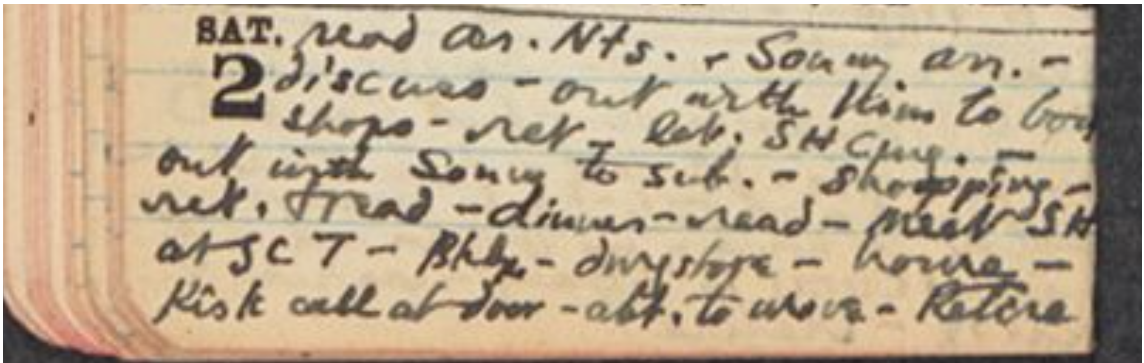 SAT. read an. Nts. + Sonny arr. -
2 discuss - out with him to book
shops - ret - let. SH Cmg. -
out with Sonny to sub. - shopping -
ret. + read - dinner - read - meet SH
at SCT - Bkly - drugstore - home -
Kirk call at door - abt. to move - Retire